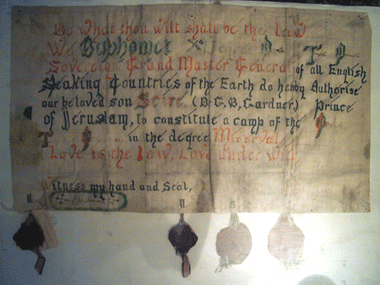 Do what thou wilt shall be the law
We Baphomet X
Sovereign Grand Master General of all English
Speaking Countries of the Earth do hereby Authorise
our beloved son Scire, (Dr G, B, Gardner,) Prince
of Jerusalam, to constitute a camp of the
in the degree Minerval.
Love is the law, Love under will
itness my hand and Seal,